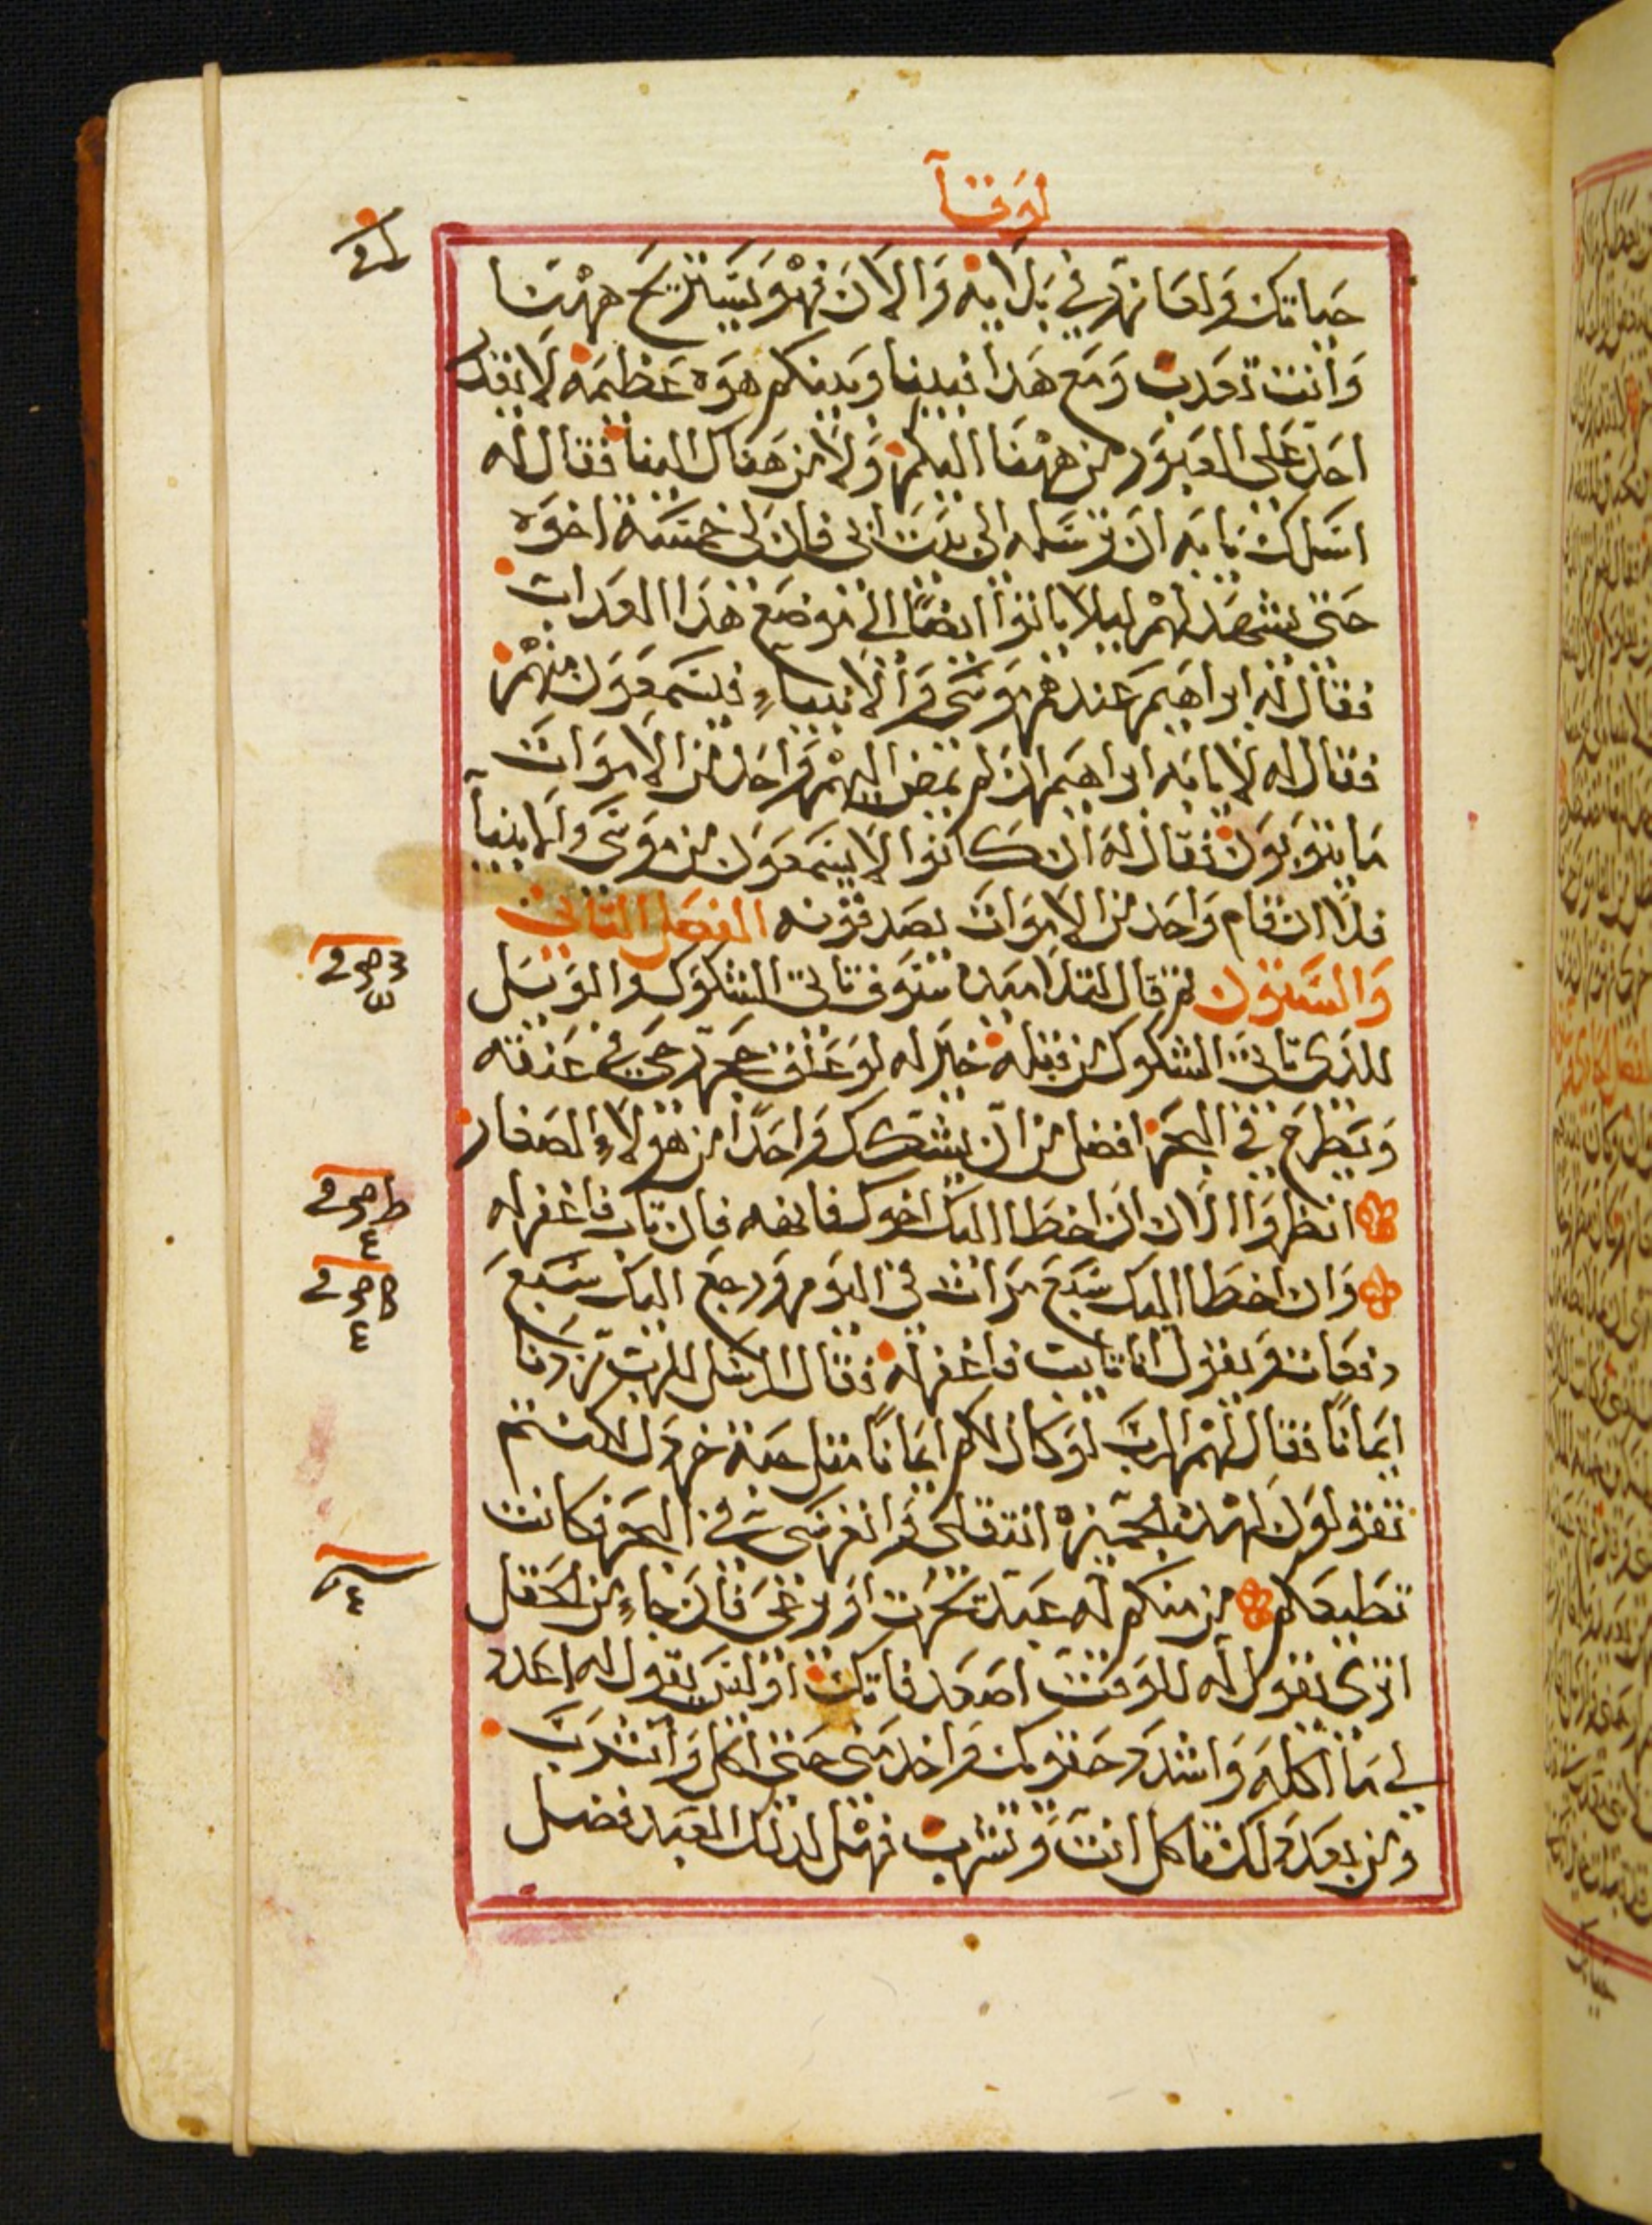 لوقا
حياتك ولعازر في بلايه والان فهو يستريح ههنا
وانت تعدب ومع هدا فبيننا وبينكم هوه عظيمه لا يقدر
احد على العبور من ههنا اليكم ولا من هناك الينا فقال له
اسلك يا ابه ان ترسله الى بيت ابي فان لى خمسة اخوه
حتى يشهد لهم ليلا ياتوا ايضا الى موضع هذا العداب
فقال له ابراهيم عندهم موسى والانبياء فليسمعون منهم
فقال له لا يا ابه ابراهيم ان لم يمض اليهم واحد من الاموات
ما يتوبون فقال له ان كانوا لا يسمعون من موسى والانبيا
فلا ان قام واحد من الاموات يصدقونه الفصل التاني
والستون تم قال لتلاميده ستوف تاتى الشكوك والويل
للذى تاتى الشكوك من قبله خير له لو علق حجر رحى في عنقه
ويطرح في البحر افضل من ان يشكك واحدا من هولاء الصغار
انظروا الان ان اخطا اليك اخوك فانهه فان تاب فاغفر له
وان اخطا اليك سبع مرات في اليوم ورجع اليك سبع
دفعات ويقول انا تايب فاغفر له فقال الرسل للرب زدنا
ايمانا فقال لهم الرب لو كان لكم ايمانا متل حبة خردل لكنتم
تقولون لهده الجميزه انتقلى وانغرسى في البحر فكانت
تطيعكم من منكم له عبد يحرت او يرعى فان جاء من الحقل
اترى يقول له للوقت اصعد فاتكى او ليس يقول له اعد
لي ما اكله واشدد حقويك واخدمنى حتى اكل واشرب
ومن بعد دلك تاكل انت وتشرب فهل لدلك العبد فضل